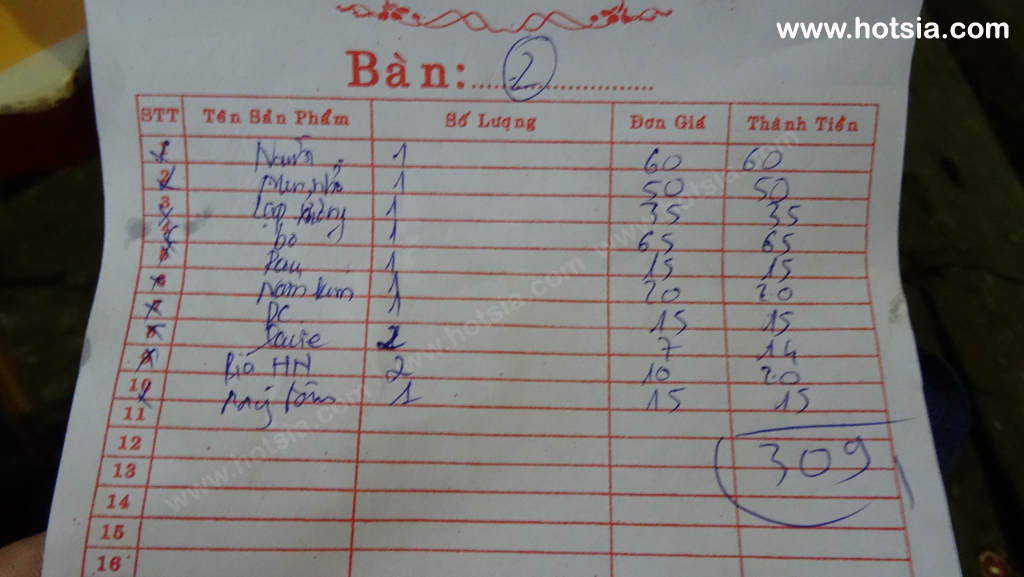 www.hotsia.com
Bàn: 2
STT Tên Sản Phẩm Số Lượng Đơn Giá Thành Tiền
1 1 60 60
2 1 50 50
3 1 35 35
4 bò 1 65 65
5 Rau 1 15 15
6 nấm kim 1 20 20
7 DC 1 15 15
8 2 7 14
9 Bia HN 2 10 20
10 1 15 15
11
12 309
13
14
15
16
www.hotsia.com
www.hotsia.com
www.hotsia.com